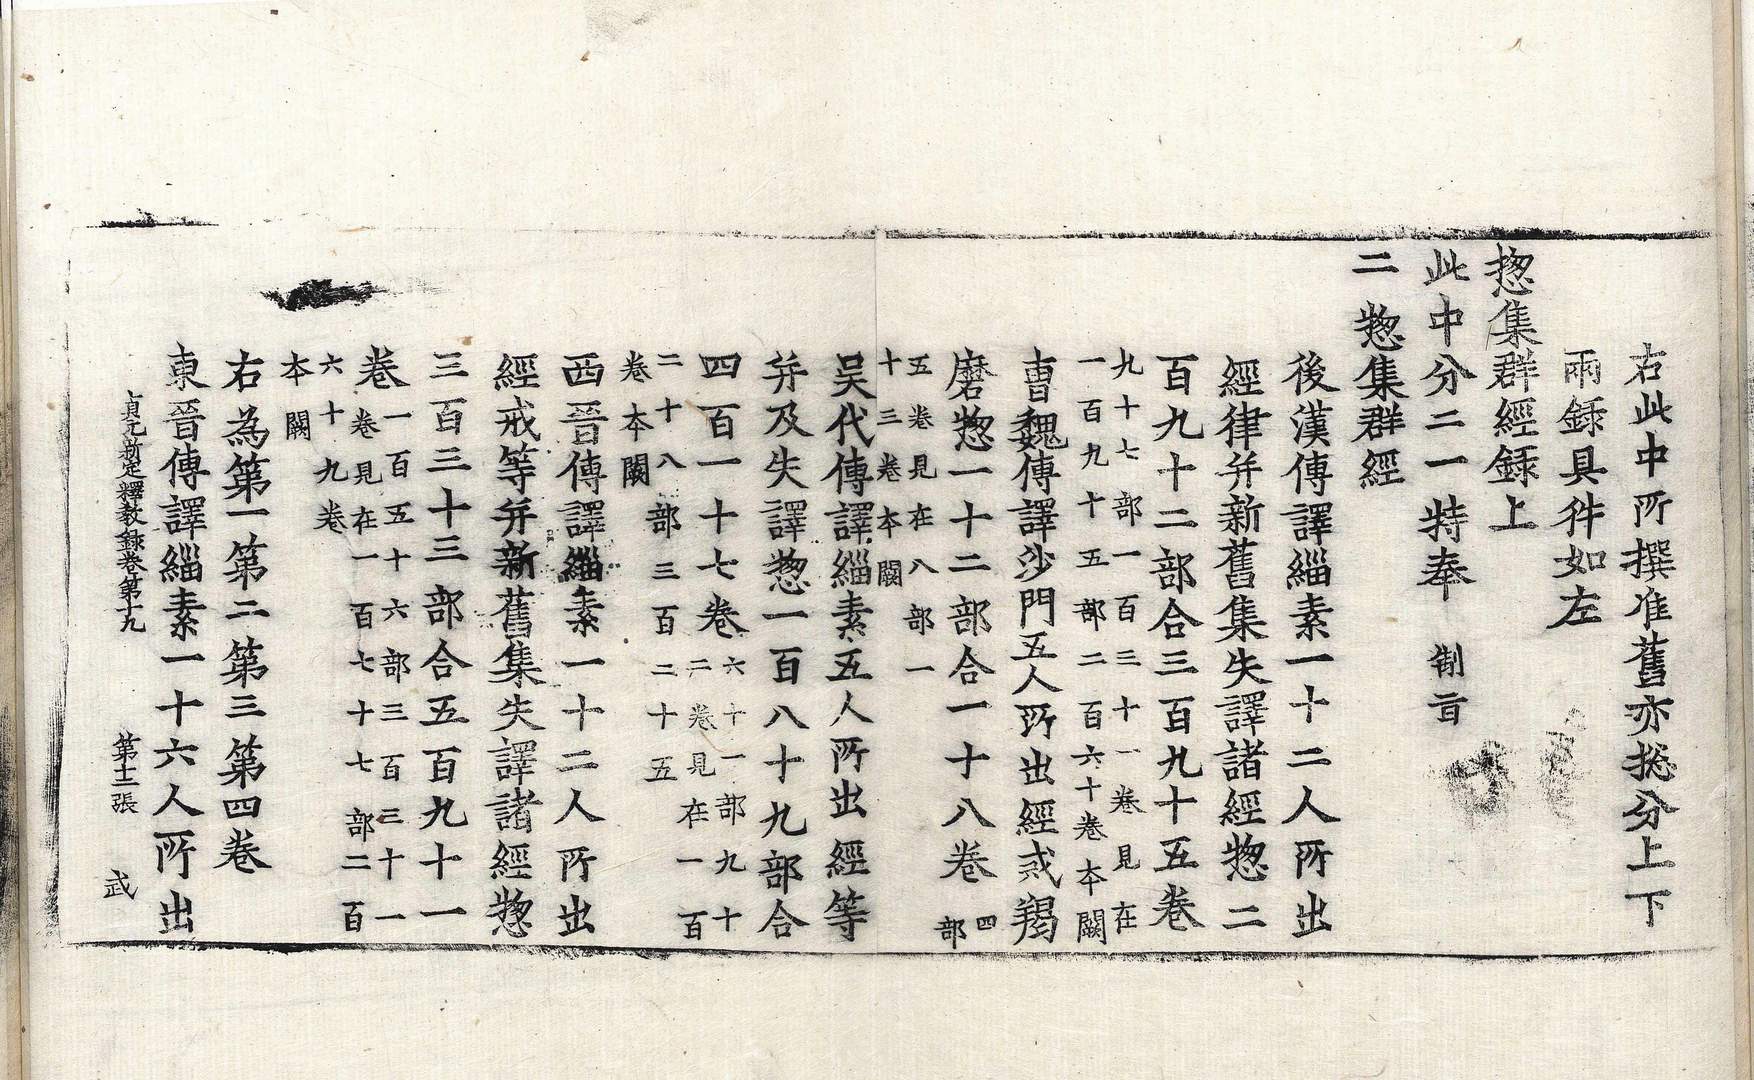 右此中所撰准舊亦捴分上下
兩錄具件如左
惣集群經錄上
此中分二一特奉 制旨
二 惣集群經
後漢傳譯緇素一十二人所出
經律并新舊集失譯諸經惣二
百九十二部合三百九十五卷
九十七部一百三十一卷見在
一百九十五部二百六十卷本闕
曹魏傳譯沙門五人所出經戒羯
磨惣一十二部合一十八卷 四
部
五卷見在八部一
十三卷本闕
吳代傳譯緇素五人所出經等
并及失譯惣一百八十九部合
四百一十七卷 六十一部九十
二卷見在一百
二十八部三百二十五
卷本闕
西晉傳譯緇素一十二人所出
經戒等并新舊集失譯諸經惣
三百三十三部合五百九十一
卷 一百五十六部三百三十一
卷見在一百七十七部二百
六十九卷
本闕
右為第一第二第三第四卷
東晉傳譯緇素一十六人所出
貞元新定釋教錄卷第十九 第十二張 武